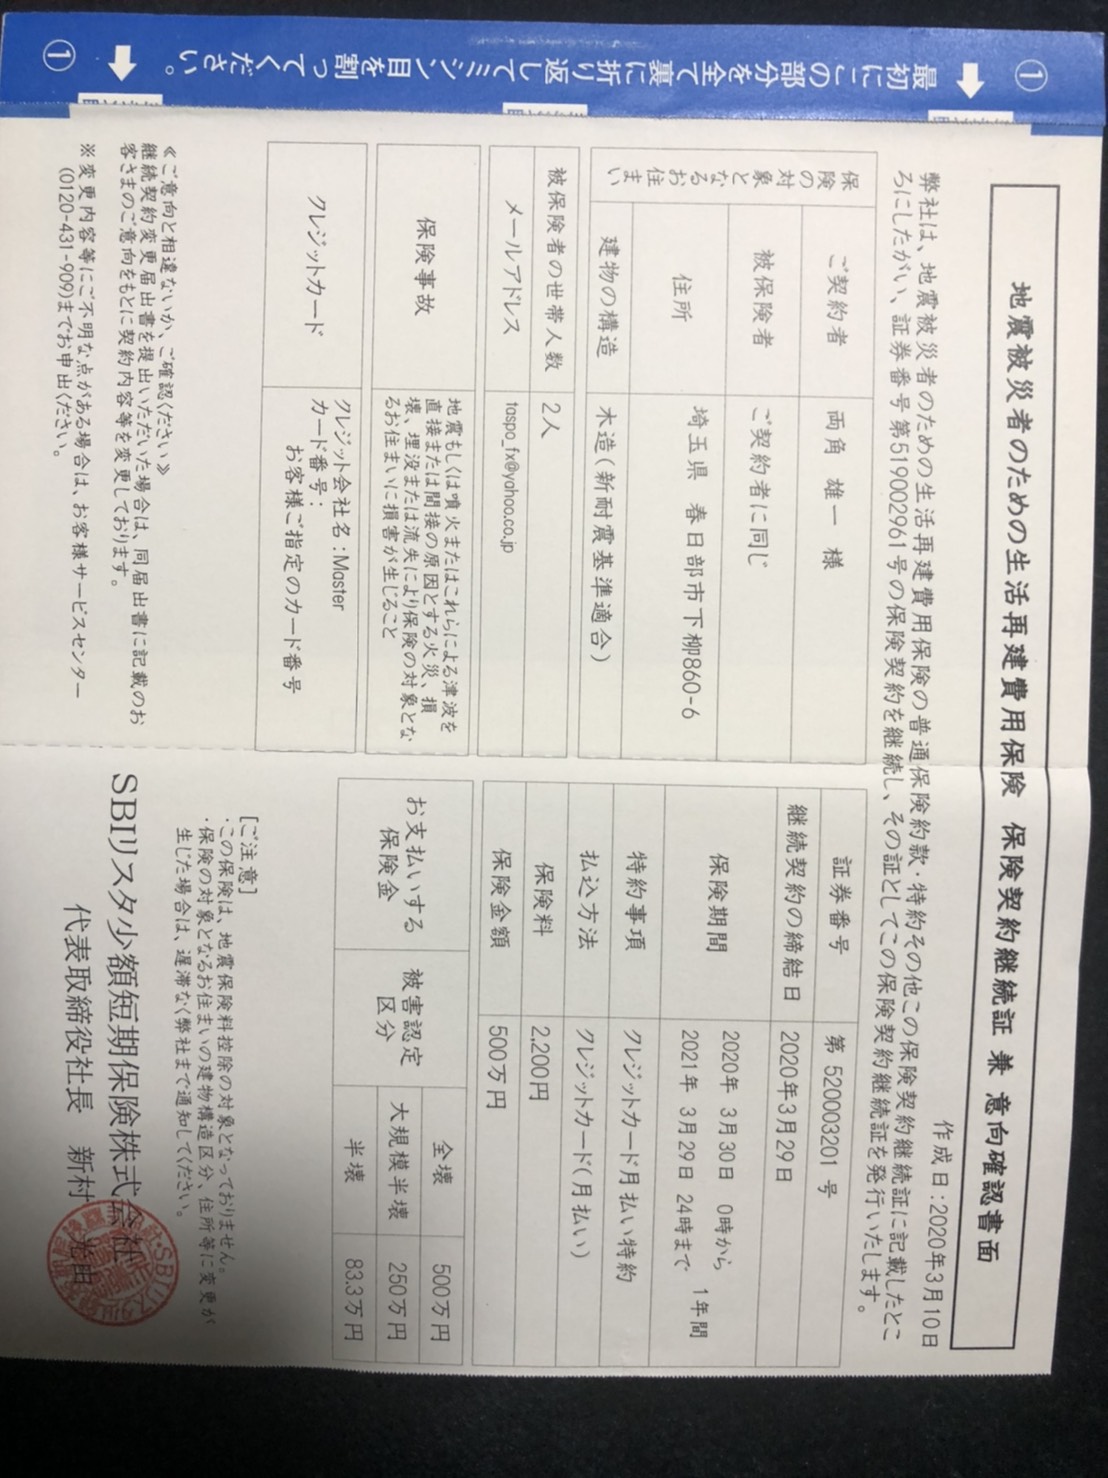 ① 最初にこの部分を全て裏に折り返してミシン目を割ってください。 ①
地震被災者のための生活再建費用保険 保険契約継続証 兼 意向確認書面
作成日:2020年3月10日
弊社は、地震被災者のための生活再建費用保険の普通保険約款・特約その他この保険契約継続証に記載したとこ
ろにしたがい、証券番号 第519002961号の保険契約を継続し、その証としてこの保険契約継続証を発行いたします。
保険の対象となるお住まい
ご契約者 両角 雄一 様
被保険者 ご契約者に同じ
住所 埼玉県 春日部市下柳860-6
建物の構造 木造(新耐震基準適合)
被保険者の世帯人数 2人
メールアドレス taspo_fx@yahoo.co.jp
保険事故
地震もしくは噴火またはこれらによる津波を
直接または間接の原因とする火災、損
壊、埋没または流失により保険の対象とな
るお住まいに損害が生じること
クレジットカード
クレジット会社名:Master
カード番号:
お客様ご指定のカード番号
≪ご意向と相違ないか、ご確認ください≫
継続契約変更届出書を提出いただいた場合は、同届出書に記載のお
客さまのご意向をもとに契約内容等を変更しております。
※変更内容等にご不明な点がある場合は、お客様サービスセンター
(0120-431-909)までお申出ください。
証券番号 第 520003201 号
継続契約の締結日 2020年3月29日
保険期間
2020年 3月30日 0時から
2021年 3月29日 24時まで 1年間
特約事項 クレジットカード月払い特約
払込方法 クレジットカード(月払い)
保険料 2,200円
保険金額 500万円
お支払いする
保険金
被害認定
区分
全壊 500万円
大規模半壊 250万円
半壊 83.3万円
[ご注意]
・この保険は、地震保険料控除の対象となっておりません。
・保険の対象となるお住まいの建物構造区分、住所等に変更が
生じた場合は、遅滞なく弊社まで通知してください。
SBIリスタ少額短期保険株式会社
代表取締役社長 新村 光由